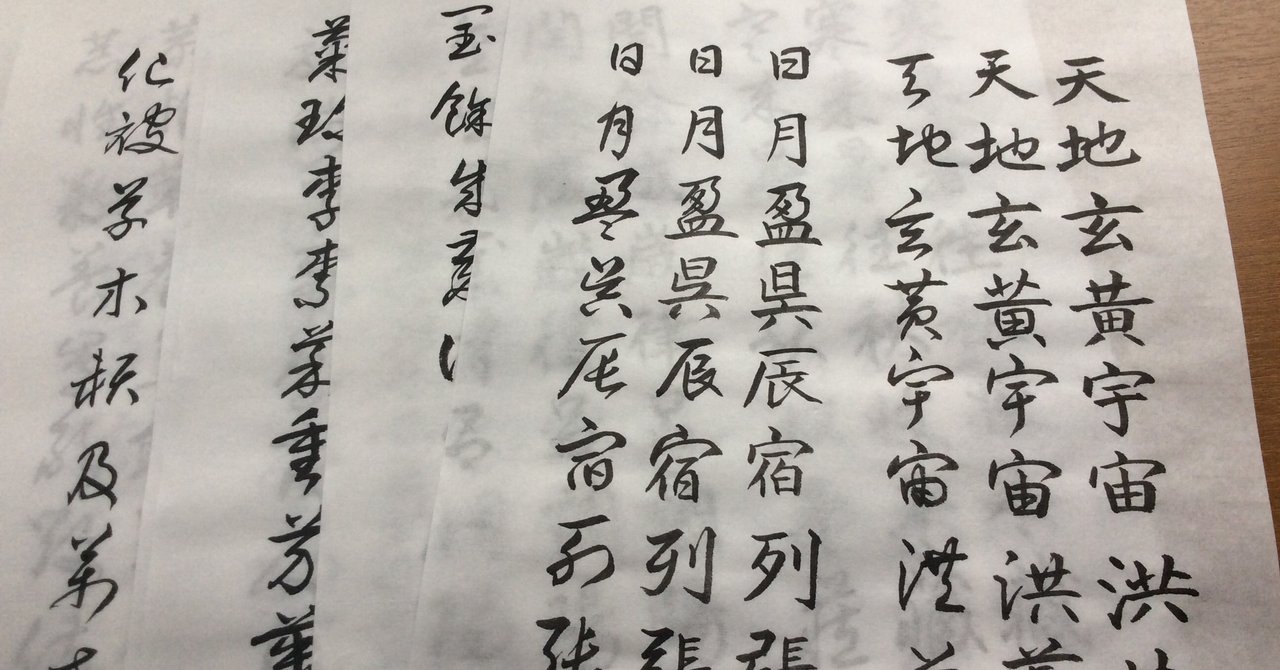 天地玄黄宇宙洪
天地玄黄宇宙洪
天地玄黄宇宙洪
日月盈昃辰宿列張
日月盈昃辰宿列張
日月盈昃辰宿列張
餘成
菜重芥
化被草木頼及萬